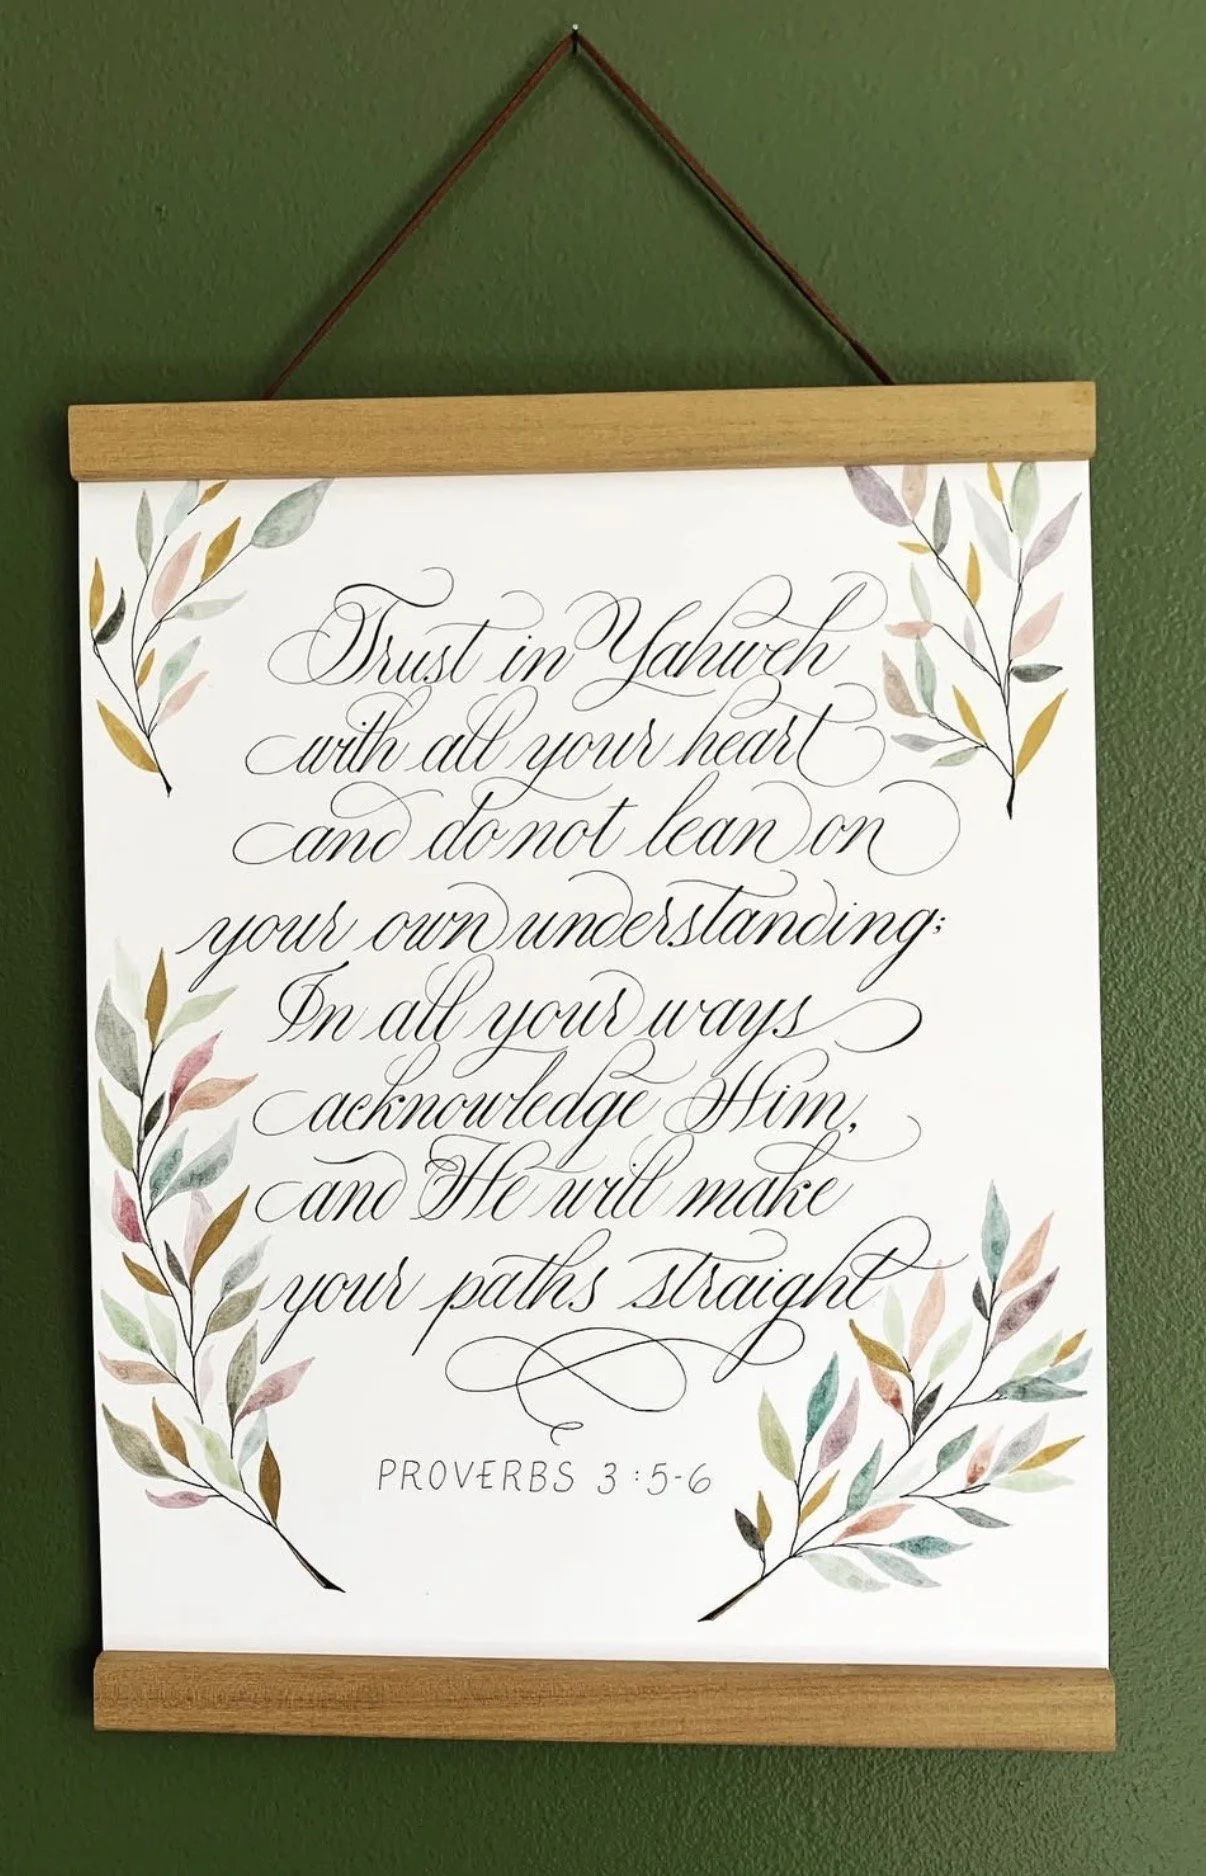 Trust in Yahweh
with all your heart
and do not lean on
your own understanding;
In all your ways
acknowledge Him,
and He will make
your paths straight
PROVERBS 3:5-6